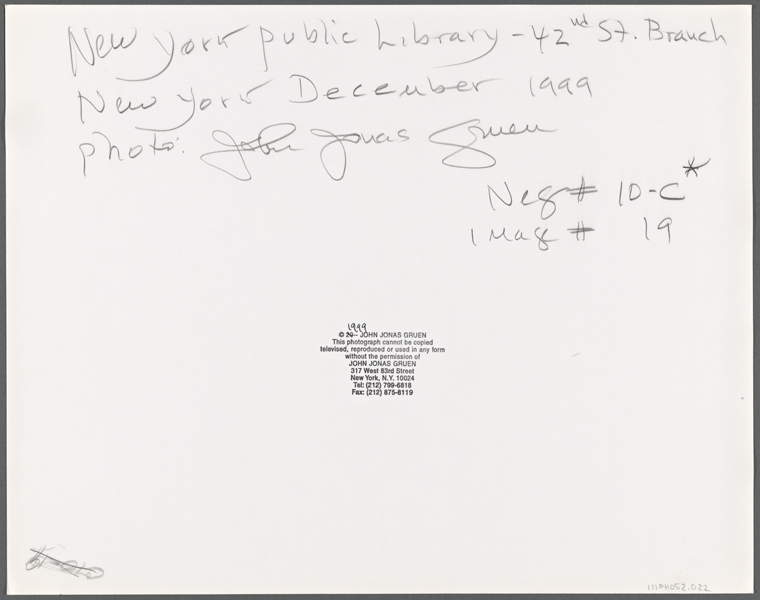 New York Public Library - 42nd St. Branch
New York December 1999
photo: John Jonas Gruen
Neg # 10-C*
Image # 19
1999
© 20-- JOHN JONAS GRUEN
This photograph cannot be copied
televised, reproduced or used in any form
without the permission of
JOHN JONAS GRUEN
317 West 83rd Street
New York, N.Y. 10024
Tel: (212) 799-6818
Fax: (212) 875-8119
111PH052.022